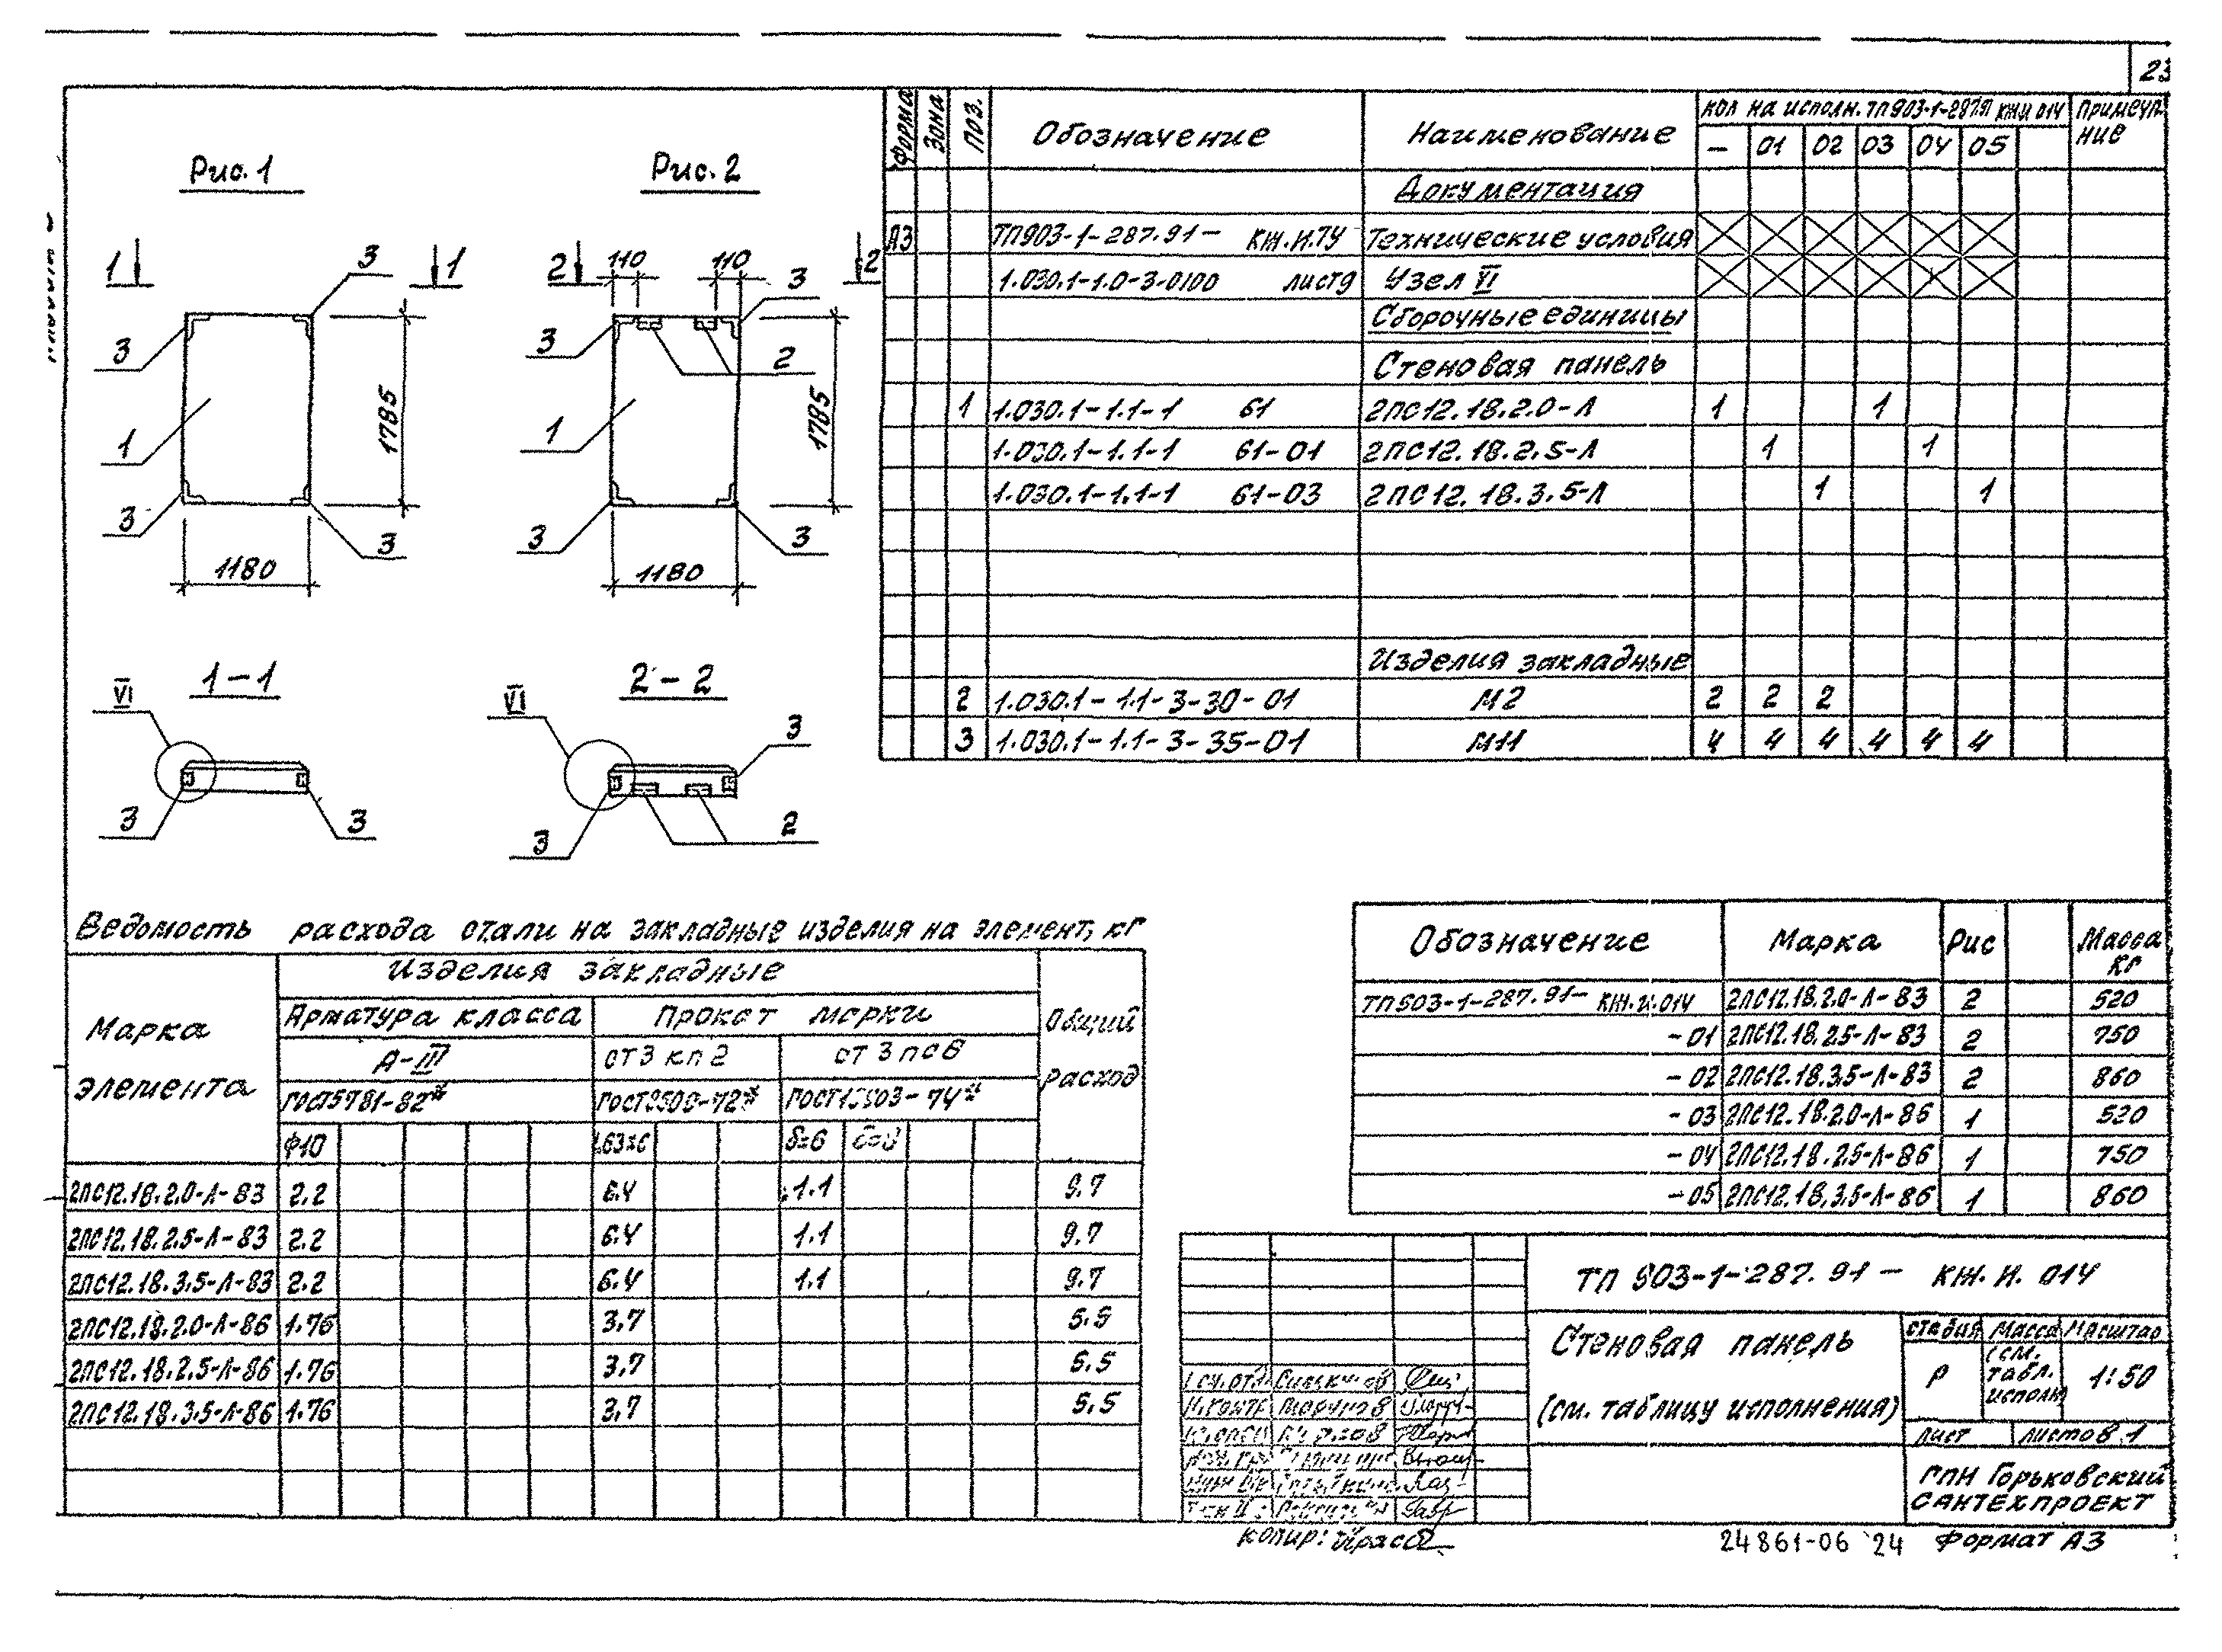 23
Рис. 1
Рис. 2
1 1
3
3
1
3
3
1785
1180
2 110 110 2
3
3
2
1
3
3
1785
1180
1-1
VI
3 3
2-2
VI
3
3
2
Форма Зона Поз. Обозначение Наименование Кол на исполн. ТП903-1-287.91 КЖ.И 014 Примеча-
ние
— 01 02 03 04 05
Документация
А3 ТП903-1-287.91- КЖ.И.ТУ Технические условия
1.030.1-1.0-3-0100 лист9 Узел VI
Сборочные единицы
Стеновая панель
1 1.030.1-1.1-1 61 2ПС12.18.2.0-Л 1 1
1.030.1-1.1-1 61-01 2ПС12.18.2.5-Л 1 1
1.030.1-1.1-1 61-03 2ПС12.18.3.5-Л 1 1
Изделия закладные
2 1.030.1-1.1-3-30-01 М2 2 2 2
3 1.030.1-1.1-3-35-01 М11 4 4 4 4 4 4
Ведомость расхода стали на закладные изделия на элемент, кг
Марка элемента Изделия закладные Общий расход
Арматура класса Прокат марки
А-III ст3 кп2 ст3пс6
ГОСТ5781-82* ГОСТ8509-72* ГОСТ19903-74*
Ф10 L63х6 δ=6
2ПС12.18.2.0-Л-83 2.2 6.4 1.1 9.7
2ПС12.18.2.5-Л-83 2.2 6.4 1.1 9.7
2ПС12.18.3.5-Л-83 2.2 6.4 1.1 9.7
2ПС12.18.2.0-Л-86 1.76 3.7 5.5
2ПС12.18.2.5-Л-86 1.76 3.7 5.5
2ПС12.18.3.5-Л-86 1.76 3.7 5.5
Обозначение Марка Рис Масса кг
ТП903-1-287.91- КЖ.И.014 2ПС12.18.2.0-Л-83 2 520
-01 2ПС12.18.2.5-Л-83 2 750
-02 2ПС12.18.3.5-Л-83 2 860
-03 2ПС12.18.2.0-Л-86 1 520
-04 2ПС12.18.2.5-Л-86 1 750
-05 2ПС12.18.3.5-Л-86 1 860
ТП 903-1-287.91- КЖ.И.014
Стеновая панель
(см. таблицу исполнения)
Стадия Масса Масштаб
Р см. табл. исполн 1:50
Лист Листов 1
ГПИ Горьковский
САНТЕХПРОЕКТ
Н.контр
Копир:
24861-06 24 Формат А3